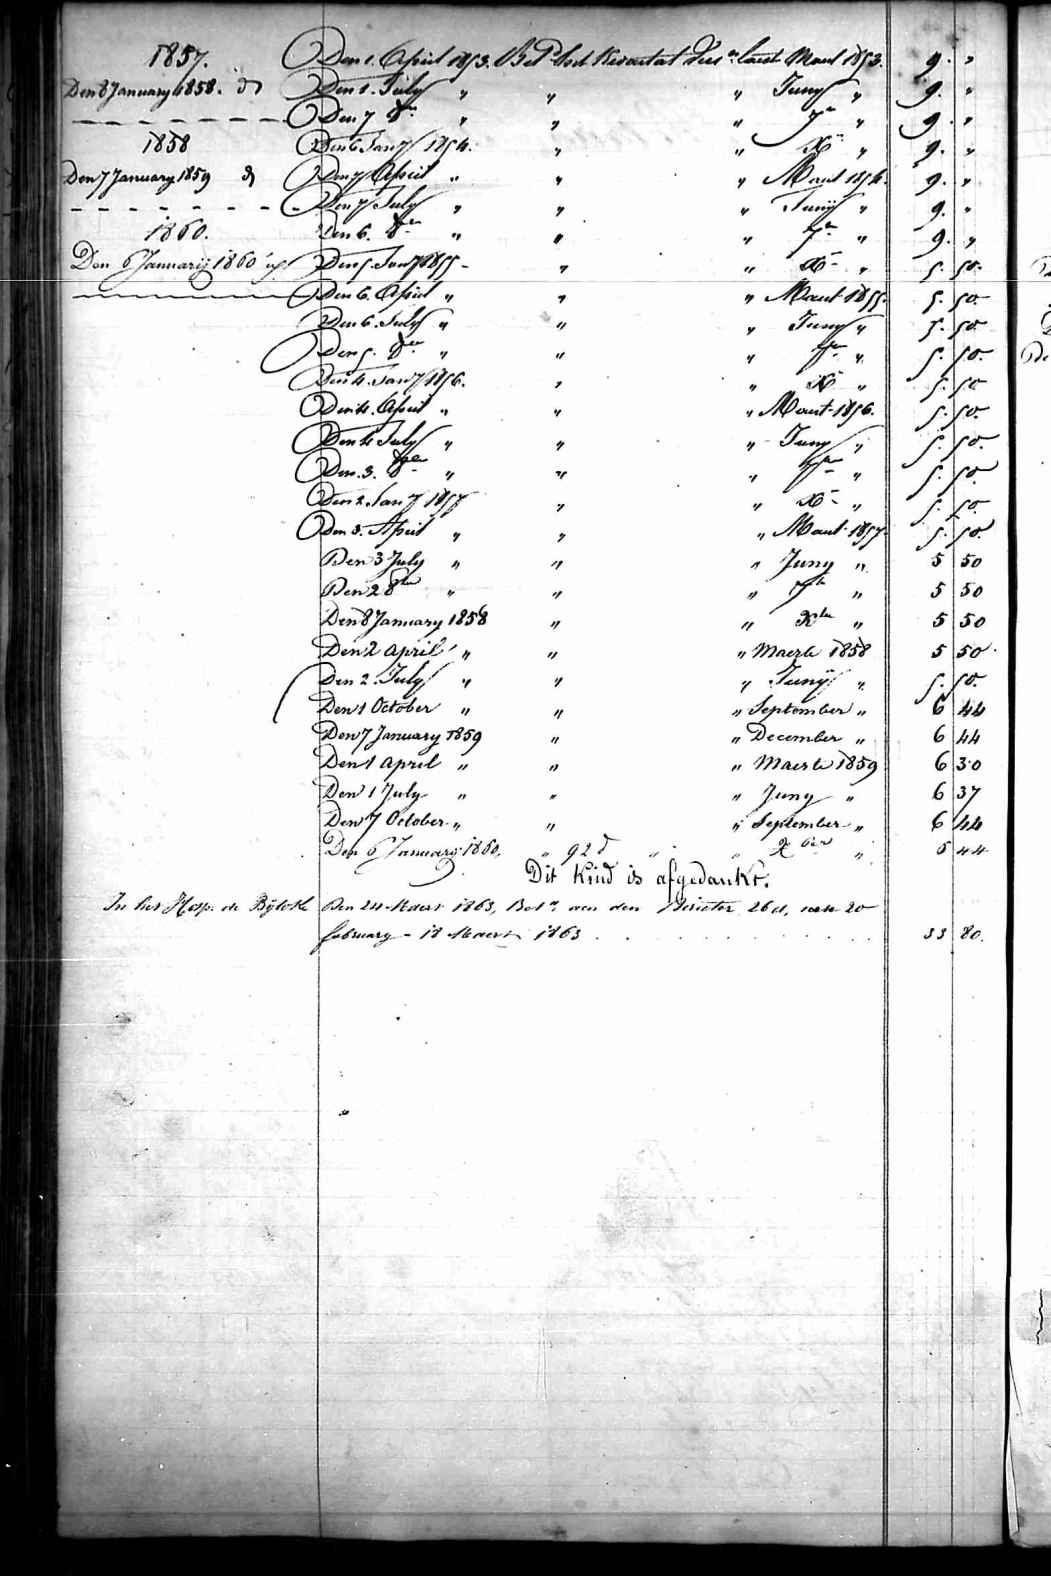 1857. Den 1. April 1853. Bet. het kwartael laest Maert 1853. 9. "
Den 8 January 1858. d Den 1. July " " " Juny " 9. "
Den 7 8er " " " 7er " 9. "
1858 Den 6 Jany 1854. " " Xer " 9. "
Den 7 January 1859 d Den 7 April " " " Maert 1854. 9. "
Den 7 July " " " Juny " 9. "
1860. Den 6. 8er " " " 7er " 9. "
Den 6 January 1860 Den 5. Jany 1855 - " " Xer " 5. 50.
Den 6. April " " " Maert 1855. 5. 50.
Den 6. July " " " Juny " 5. 50.
Den 5. 8er " " " 7er " 5. 50.
Den 4. Jany 1856. " " Xer " 5. 50
Den 4. April " " " Maert 1856. 5. 50.
Den 4 July " " " Juny " 5. 50.
Den 3. 8er " " " 7er " 5. 50
Den 2. Jany 1857 " " Xer " 5. 50.
Den 3. April " " " Maert 1857. 5. 50.
Den 3 July " " " Juny " 5 50
Den 2 8ber " " " 7ber " 5 50
Den 8 January 1858 " " Xber " 5 50
Den 2 april " " " Maerte 1858 5 50
Den 2. July " " " Juny " 5. 50.
Den 1 October " " " September " 6 44
Den 7 January 1859 " " December " 6 44
Den 1 april " " " Maerte 1859 6 30
Den 1 July " " " Juny " 6 37
Den 7 October " " " September " 6 44
Den 6 January 1860, " 92 d " " Xber " 6 44
Dit kind is afgedankt.
In het Hosp. de Bijloke Den 24 Maert 1863, Bet. aen den 26 d, van 20
february - 18 Maert 1863 33 80.